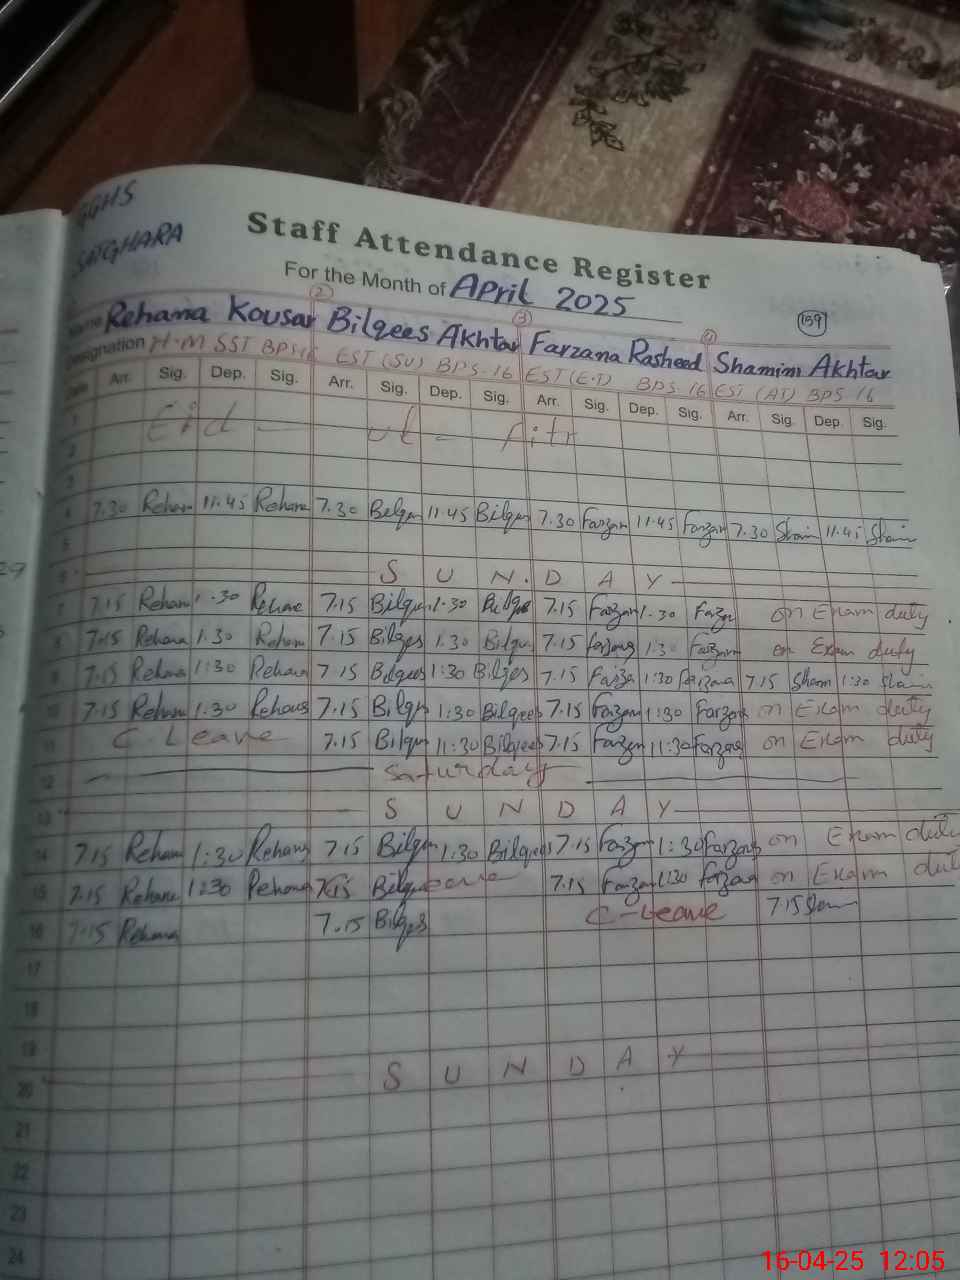 GGHS
SATGHARA
Staff Attendance Register
For the Month of April 2025
159
② ③ ④
Name Rehana Kousar Bilqees Akhtar Farzana Rasheed Shamim Akhtar
Designation H.M SST BPS-16 EST (SV) BPS-16 EST (E.T) BPS-16 EST (AT) BPS-16
Date Arr. Sig. Dep. Sig. Arr. Sig. Dep. Sig. Arr. Sig. Dep. Sig. Arr. Sig. Dep. Sig.
1 Eid — ul — fitr
2
3
4 7.30 Rehana 11.45 Rehana 7.30 Bilqees 11.45 Bilqees 7.30 Farzan 11.45 Farzan 7.30 Sham 11.45 Sham
5
6 SUNDAY
7 7.15 Rehana 1.30 Rehana 7.15 Bilqees 1.30 Bilqees 7.15 Farzan 1.30 Farzan on Exam duty
8 7.15 Rehana 1.30 Rehana 7.15 Bilqees 1.30 Bilqees 7.15 Farzana 1.30 Farzana on Exam duty
9 7.15 Rehana 1:30 Rehana 7.15 Bilqees 1:30 Bilqees 7.15 Farzana 1:30 Farzana 7.15 Sham 1:30 Sham
10 7.15 Rehana 1.30 Rehana 7.15 Bilqees 1:30 Bilqees 7.15 Farzan 1:30 Farzana on Exam duty
11 C-Leave 7.15 Bilqees 11:30 Bilqees 7.15 Farzan 11:30 Farzana on Exam duty
12 Saturday
13 SUNDAY
14 7.15 Rehana 1:30 Rehana 7.15 Bilqees 1.30 Bilqees 7.15 Farzan 1:30 Farzana on Exam duty
15 7.15 Rehana 1:30 Rehana 7.15 Bilqees 7.15 Farzan 1:30 Farzana on Exam duty
16 7.15 Rehana 7.15 Bilqees C-Leave 7.15 Sham
17
18
19
20 SUNDAY
21
22
23
24
16-04-25 12:05